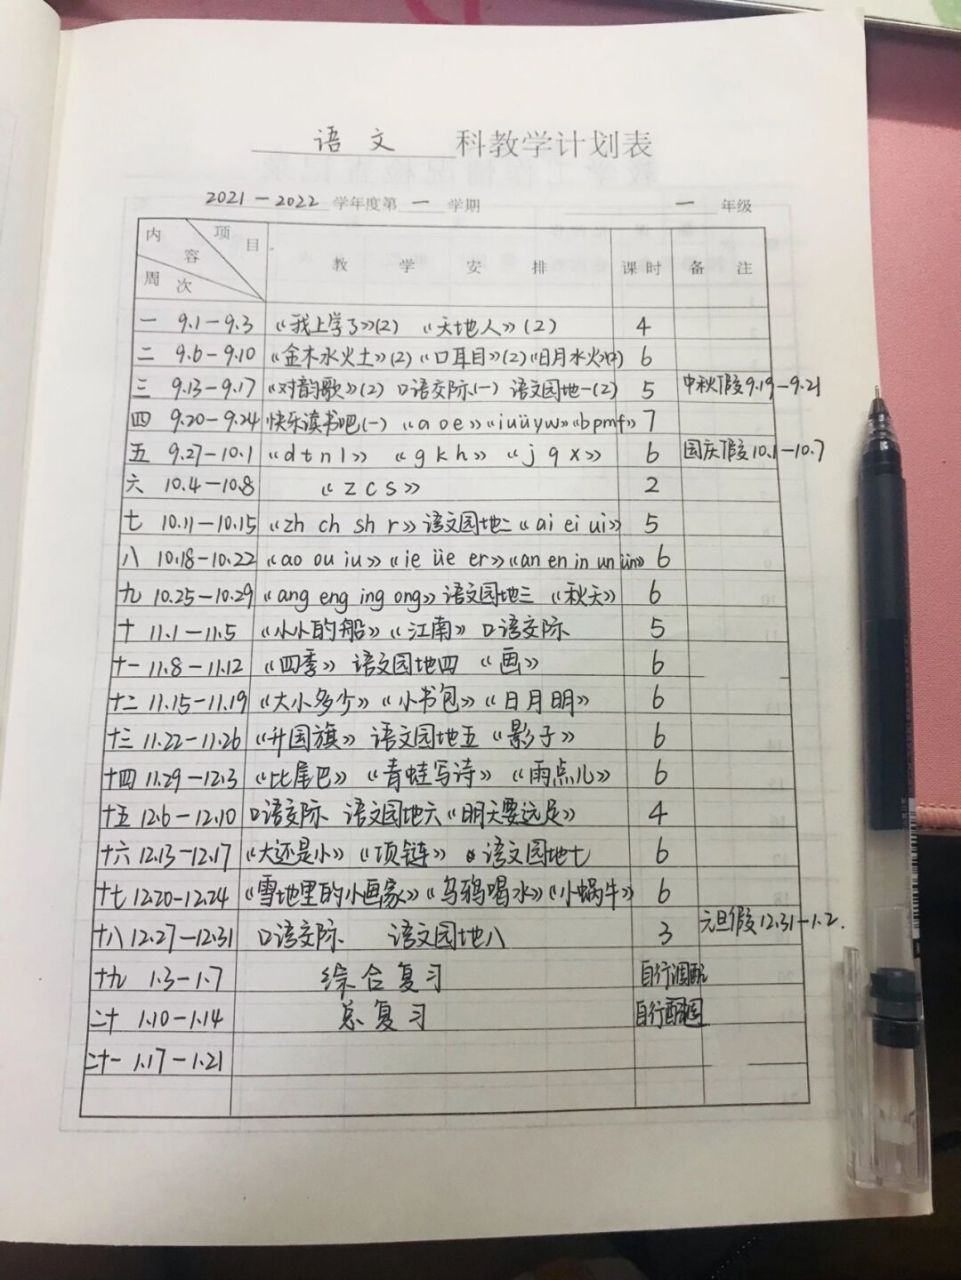 语文 科教学计划表
2021-2022 学年度第 一 学期 一 年级
内容 项目 周次 教学安排 课时 备注
一 9.1-9.3 《我上学了》(2) 《天地人》(2) 4
二 9.6-9.10 《金木水火土》(2)《口耳目》(2)《日月水火》 6
三 9.13-9.17 《对韵歌》(2) 口语交际(一) 语文园地一(2) 5 中秋假9.19-9.21
四 9.20-9.24 快乐读书吧(一) 《a o e》《iuüyw》《bpmf》 7
五 9.27-10.1 《d t n l》 《g k h》 《j q x》 6 国庆假10.1-10.7
六 10.4-10.8 《z c s》 2
七 10.11-10.15 《zh ch sh r》语文园地二《ai ei ui》 5
八 10.18-10.22 《ao ou iu》《ie üe er》《an en in un ün》 6
九 10.25-10.29 《ang eng ing ong》语文园地三 《秋天》 6
十 11.1-11.5 《小小的船》《江南》口语交际 5
十一 11.8-11.12 《四季》 语文园地四 《画》 6
十二 11.15-11.19 《大小多少》《小书包》《日月明》 6
十三 11.22-11.26 《升国旗》 语文园地五《影子》 6
十四 11.29-12.3 《比尾巴》《青蛙写诗》《雨点儿》 6
十五 12.6-12.10 口语交际 语文园地六《明天要远足》 4
十六 12.13-12.17 《大还是小》《项链》 语文园地七 6
十七 12.20-12.24 《雪地里的小画家》《乌鸦喝水》《小蜗牛》 6
十八 12.27-12.31 口语交际 语文园地八 3 元旦假12.31-1.2.
十九 1.3-1.7 综合复习 自行调配
二十 1.10-1.14 总复习 自行
二十一 1.17-1.21